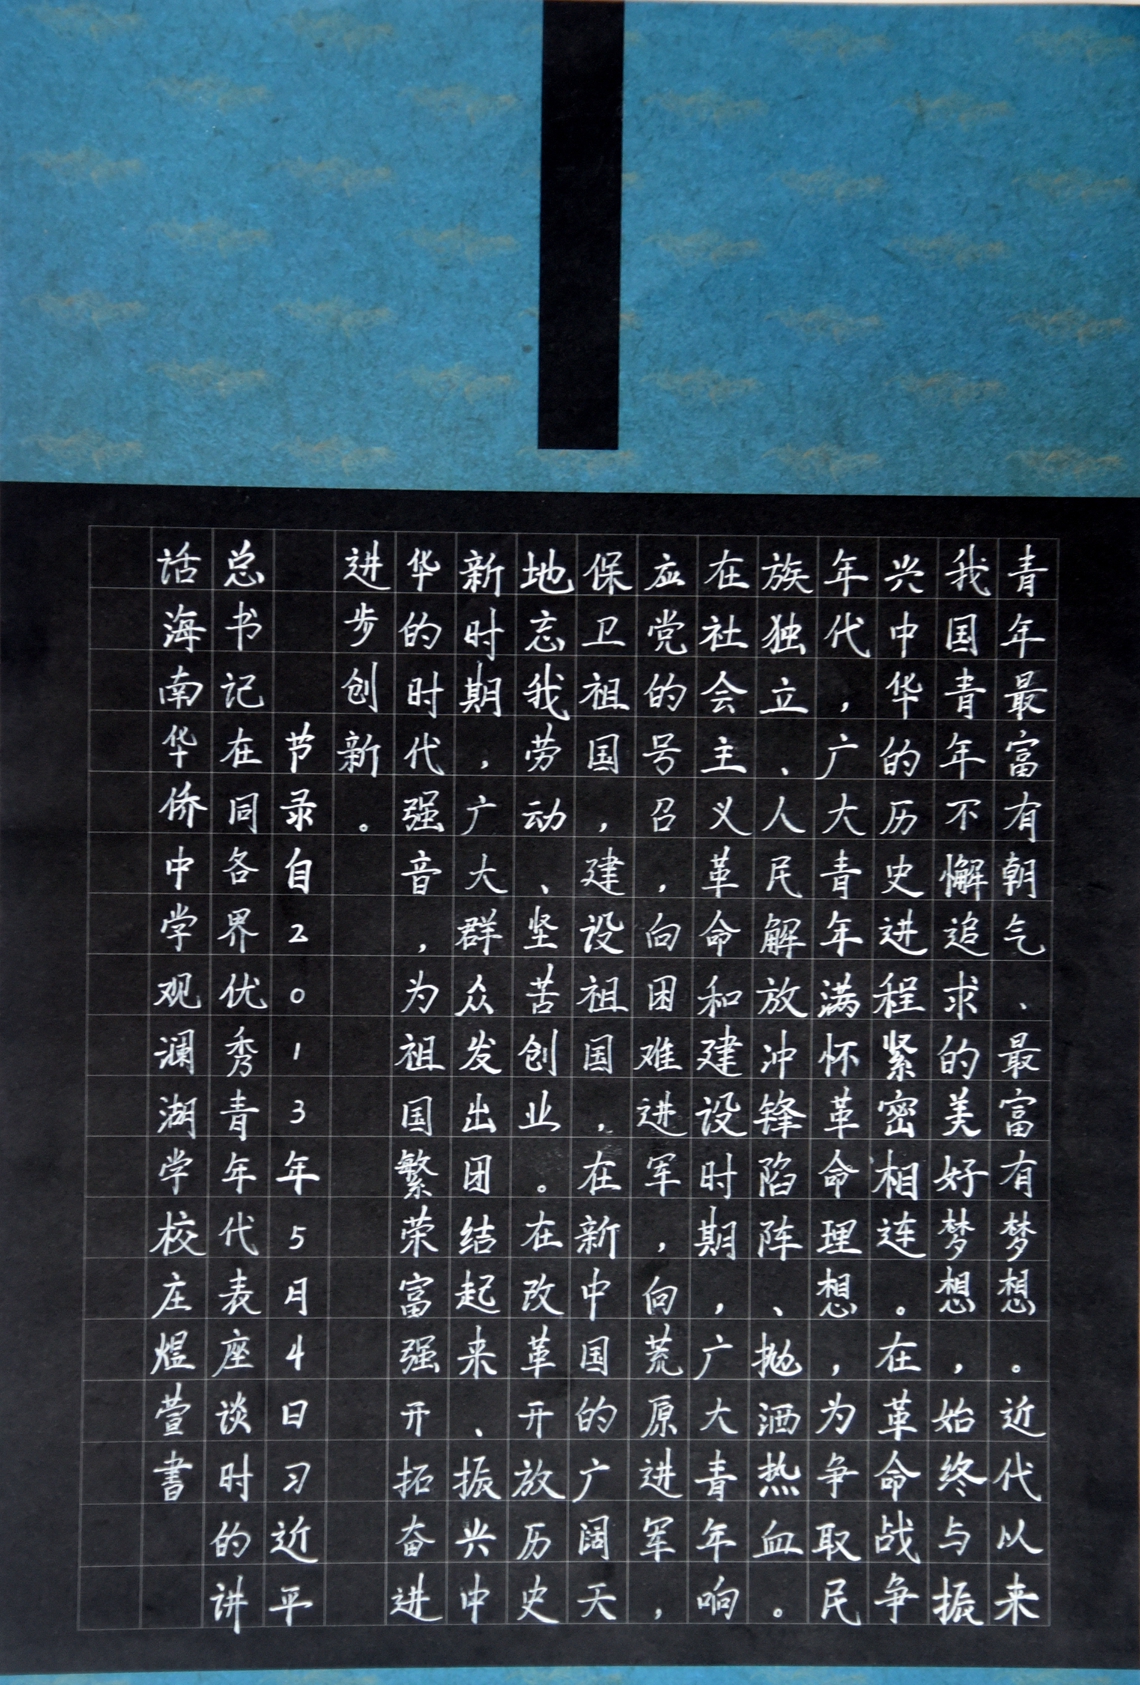 青年最富有朝气、最富有梦想。近代以来
我国青年不懈追求的美好梦想，始终与振
兴中华的历史进程紧密相连。在革命战争
年代，广大青年满怀革命理想，为争取民
族独立、人民解放冲锋陷阵、抛洒热血。
在社会主义革命和建设时期，广大青年响
应党的号召，向困难进军，向荒原进军，
保卫祖国，建设祖国，在新中国的广阔天
地忘我劳动、坚苦创业。在改革开放历史
新时期，广大群众发出团结起来、振兴中
华的时代强音，为祖国繁荣富强开拓奋进
进步创新。
节录自2013年5月4日习近平
总书记在同各界优秀青年代表座谈时的讲
话海南华侨中学观澜湖学校庄煜萱書